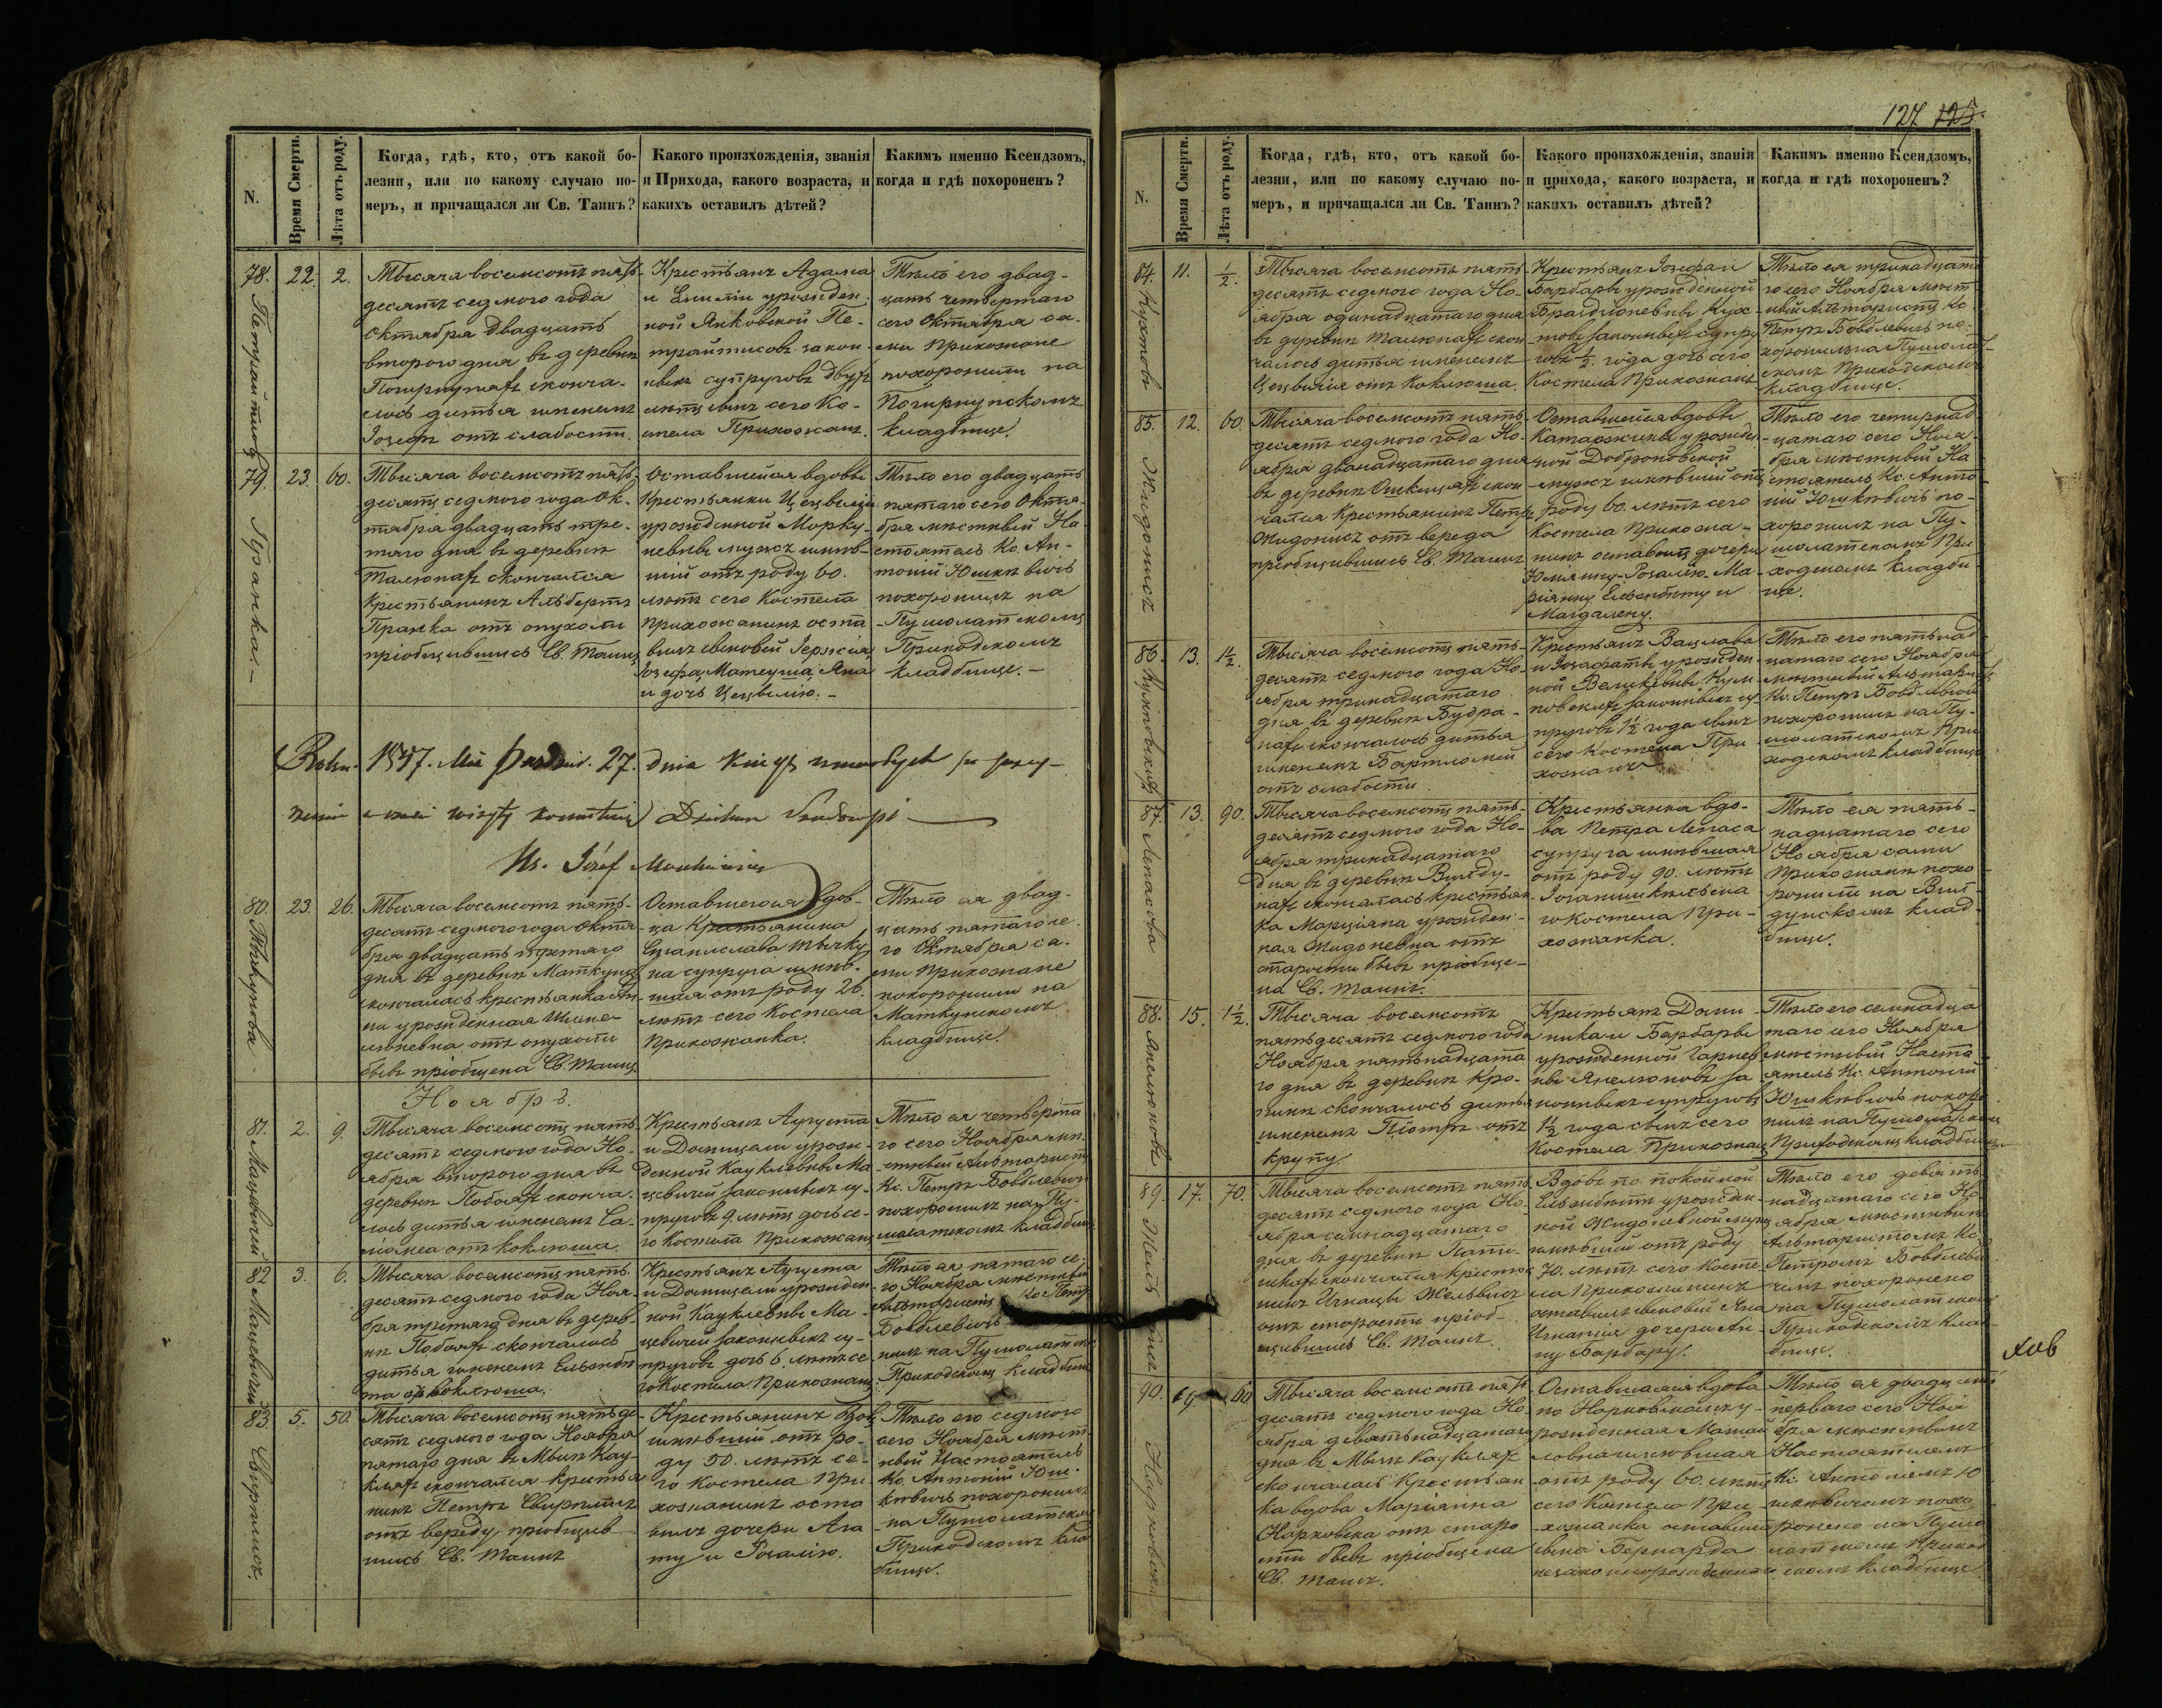 127 125.
N.
Время Смерти.
Лѣта отъ роду.
Когда, гдѣ, кто, отъ какой бо-
лезни, или по какому случаю по-
меръ, и причащался ли Св. Таинъ?
Какого произхожденія, званія
и Прихода, какого возраста, и
какихъ оставилъ дѣтей?
Какимъ именно Ксендзомъ,
когда и гдѣ похороненъ?
78.
22.
2.
Тысяча восемсотъ пять-
десятъ седмого года
Октября двадцать
второго дня въ деревни
скончa-
лось дитья именемъ
Іозефъ отъ слабости.
Крестьянъ Адама
и Емиліи урожден-
ной Янковской Пе-
законн-
ныхъ супруговъ двухъ
лѣтъ сынъ сего Ко-
стела Прихожанъ.
Тѣло его двад-
цать четвертаго
сего Октября са-
ми Прихожане
похоронили на
кладбище.
79.
Пранка. -
23.
60.
Тысяча восемсотъ пять-
десятъ седмого года Ок-
тября двадцать тре-
таго дня въ деревни
скончался
Крестьянинъ Альбертъ
Пранка отъ опухоли
пріобщившись Св. Таинъ
Оставшейся вдовы
Крестьянки Цецыліи
урожденной Морку-
невны мужъ имѣв-
шій отъ роду 60.
лѣтъ сего Костела
прихожанинъ оста-
вилъ сыновей
Іозефа, Матеуша, Яна
и дочь Цецылію. -
Тѣло его двадцать
пятаго сего Октя-
бря мѣстный На-
стоятель Кс. Ан-
тоній Юшкевичь
похоронилъ на
Пушолатскомъ
Приходскомъ
кладбище. -
Roku 1857. 27. dnia
Ks. Józef
80.
23.
26.
Тысяча восемсотъ пять-
десятъ седмого года Октя-
бря двадцать третаго
дня въ деревни
скончалась крестьянка Ан-
на урожденная
отъ опухоли
бывъ пріобщена Св. Таинъ
Оставшегося вдов-
ца Крестьянина
Станислава
на супруга имѣв-
шая отъ роду 26.
лѣтъ сего Костела
Прихожанка.
Тѣло ея двад-
цать пятаго се-
го Октября са-
ми прихожане
похоронили на
кладбище.
Ноябрь.
81.
Мацевичей
2.
9.
Тысяча восемсотъ пять-
десятъ седмого года Но-
ября второго дня въ
деревни Побояхъ сконча-
лось дитья именемъ Са-
ломеа отъ коклюша.
Крестьянъ Августа
и Домицели урож-
денной Кауклевны Ма-
цевичей законныхъ су-
пруговъ 9 лѣтъ дочь се-
го Костела Прихожанъ
Тѣло ея четверта-
го сего Ноября мѣ-
стный Альтаристъ
Кс. Петръ Бовблевичь
похоронилъ на Пу-
шолатскомъ кладбищѣ
82
Мацевичей
3.
6.
Тысяча восемсотъ пять-
десятъ седмого года Ноя-
бря третаго дня въ дерев-
ни Побояхъ скончалось
дитья именемъ Ельжбѣ-
та отъ коклюша.
Крестьянъ Августа
и Домицели урожден-
ной Кауклевны Ма-
цевичей законныхъ су-
пруговъ дочь 6. лѣтъ се-
го Костела Прихожанъ
Тѣло ея пятаго се-
го Ноября мѣстный
Альтаристъ Кс. Петръ
Бовблевичь
на Пушолатск
Приходскомъ кладбищ
83
5.
50.
Тысяча восемсотъ пятьде-
сятъ седмого года Ноября
пятаго дня въ Мѣст. Кау-
кляхъ скончался крестья-
нинъ Петръ
отъ вереду, пріобщив-
шись Св. Таинъ
Крестьянинъ вдов.
имѣвшій отъ ро-
ду 50. лѣтъ се-
го Костела При-
хожанинъ оста-
вилъ дочери Ага-
ту и Розалію.
Тѣло его седмого
сего Ноября мѣст-
ный Настоятель
Кс. Антоній Юш-
кевичь похоронилъ
на Пушолатском
Приходскомъ кла-
бище.
N.
Время Смерти.
Лѣта отъ роду.
Когда, гдѣ, кто, отъ какой бо-
лезни, или по какому случаю по-
меръ, и причащался ли Св. Таинъ?
Какого произхожденія, званія
и прихода, какого возраста, и
какихъ оставилъ дѣтей?
Какимъ именно Ксендзомъ,
когда и гдѣ похороненъ?
84.
11.
1/2.
Тысяча восемсотъ пять-
десятъ седмого года Но-
ября одинадцатаго дня
въ деревни скон-
чалось дитья именемъ
Цецылія отъ Коклюша.
Крестьянъ Іозефа и
Барбары урожденной
законныхъ супру-
говъ 1/2. года дочь сего
Костела Прихожанъ
Тѣло ея тринадцата-
го сего Ноября мѣст-
ный Альтаристъ Кс.
Петръ Бовблевичь по-
хоронилъ на Пушолат-
скомъ Приходскомъ
кладбище.
85.
Жидонисъ
12.
60.
Тысяча восемсотъ пять-
десятъ седмого года Но-
ября двенадцатаго дня
въ деревни скон-
чался Крестьянинъ Петръ
Жидонисъ отъ вереда
пріобщившись Св. Таинъ
Оставшейся вдовы
Катаржины урожден-
ной
мужъ имѣвшій отъ
роду 60. лѣтъ сего
Костела Прихожа-
нинъ оставилъ дочери
Юліянну, Розалію, Ма-
ріянну, Ельжбѣту и
Магдалену.
Тѣло его четырнад-
цатаго сего Ноя-
бря мѣстный На-
стоятель Кс. Анто-
ній Юшкевичь по-
хоронилъ на Пу-
шолатскомъ При-
ходскомъ кладби-
ще.
86.
13.
1 1/2.
Тысяча восемсотъ пять-
десятъ седмого года Но-
ября тринадцатаго
дня въ деревни Будра-
нахъ скончалось дитья
именемъ Бартломей
отъ слабости
Крестьянъ Вацлава
и Іозафаты урожден-
ной
законныхъ су-
пруговъ 1 1/2 года сынъ
сего Костела При-
хожанъ
Тѣло его пятьнад-
цатаго сего Ноября
мѣстный Альтаристъ
Кс. Петръ Бовблевичь
похоронилъ на Пу-
шолатскомъ При-
ходскомъ кладбище
87.
Лепасова
13.
90.
Тысяча восемсотъ пять-
десятъ седмого года Но-
ября тринадцатаго
дня въ деревни Вилду-
нахъ скончалась крестьян-
ка Марціяна урожден-
ная Жидоневна отъ
старости бывъ пріобще-
на Св. Таинъ.
Крестьянка вдо-
ва Петра Лепаса
супруга имѣвшая
отъ роду 90. лѣтъ
го Костела При-
хожанка.
Тѣло ея пять-
надцатаго сего
Ноября сами
прихожани похо-
ронили на Вил-
дунскомъ клад-
бище.
88.
15.
1 1/2.
Тысяча восемсотъ
пятьдесятъ седмого года
Ноября пятьнадцата-
го дня въ деревни Кро-
скончалось дитья
именемъ Піотръ отъ
крупу.
Крестьянъ Доми-
ника и Барбары
урожденной
за-
конныхъ супруговъ
1 1/2 года сынъ сего
Костела Прихожанъ
Тѣло его семнадца-
таго сего Ноября
мѣстный Насто-
ятель Кс. Антоній
Юшкевичь похоро-
нилъ на Пушолатскомъ
Приходскомъ кладбищ
89.
17.
70.
Тысяча восемсотъ пять-
десятъ седмого года Но-
ября семнадцатаго
дня въ деревни
скончался крестья-
нинъ Игнацы
отъ старости пріоб-
щившись Св. Таинъ.
Вдовъ по покойной
Ельжбѣтѣ урожден-
ной Жидоневной мужъ
имѣвшій отъ роду
70. лѣтъ сего Косте-
ла Прихожанинъ
оставилъ сыновей Яна
Игнатія дочери Ан-
ну Барбару.
Тѣло его девять-
надцатаго сего Но-
ября мѣстнымъ
Альтаристомъ Кс.
Петромъ Бовблеви-
чемъ похоронено
на Пушолатском
Приходскомъ кла-
бище.
хов
90.
19.
60.
Тысяча восемсотъ пять-
десятъ седмого года Но-
ября девятьнадцатаго
дня въ Мѣст. Каукляхъ
скончалась Крестьян-
ка вдова Маріянна
отъ старо-
сти бывъ пріобщена
Св. Таинъ.
Оставшаяся вдова
по
имѣвшая
отъ роду 60. лѣтъ
сего Костела При-
хожанка оставила
сына Бернарда
Тѣло ея двадцать
перваго сего Ноя-
бря мѣстнымъ
Настоятелемъ
Кс. Антоніемъ Ю-
шкевичемъ похо-
ронено на Пушо-
латскомъ Приход-
скомъ кладбище.